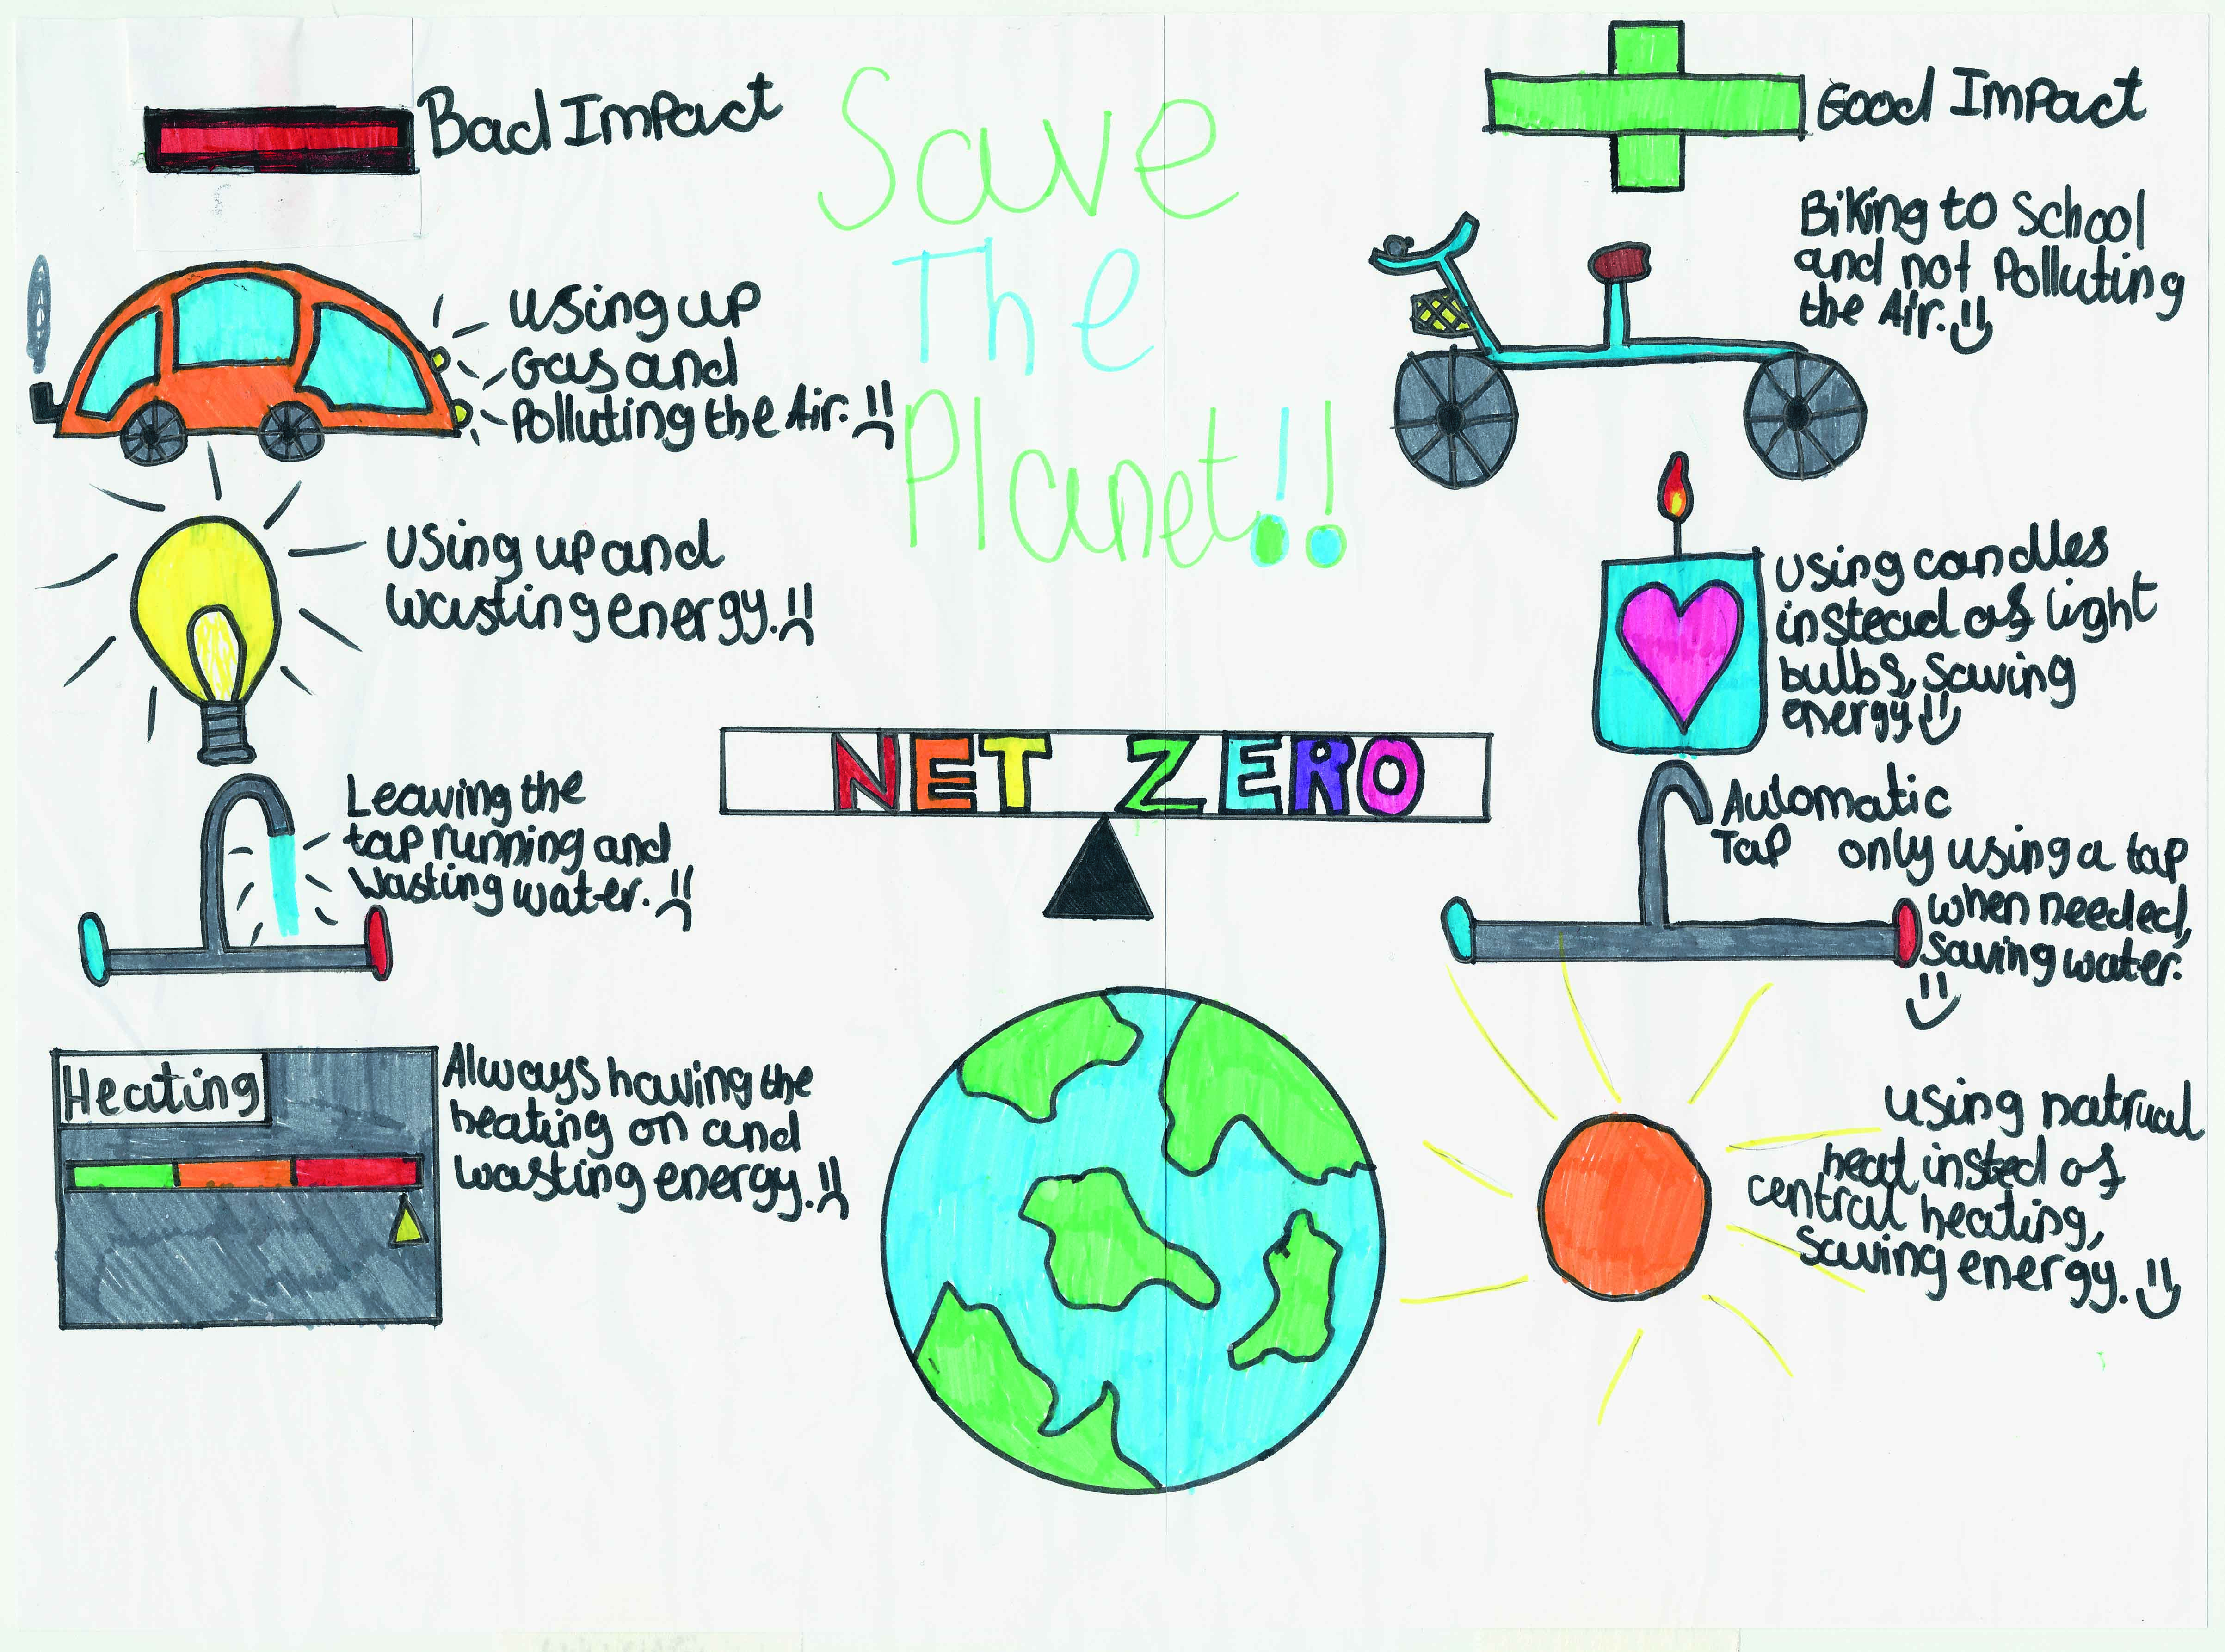 Bad Impact
Using up
Gas and
Polluting the Air.
Using up and
wasting energy.
Leaving the
tap running and
wasting water.
Heating
Always having the
heating on and
wasting energy.
Save
The
Planet!!
NET ZERO
Good Impact
Biking to School
and not Polluting
the Air.
Using candles
instead of light
bulbs, saving
energy.
Automatic
Tap only using a tap
when needed,
saving water.
using natrual
heat insted of
central heating,
saving energy.